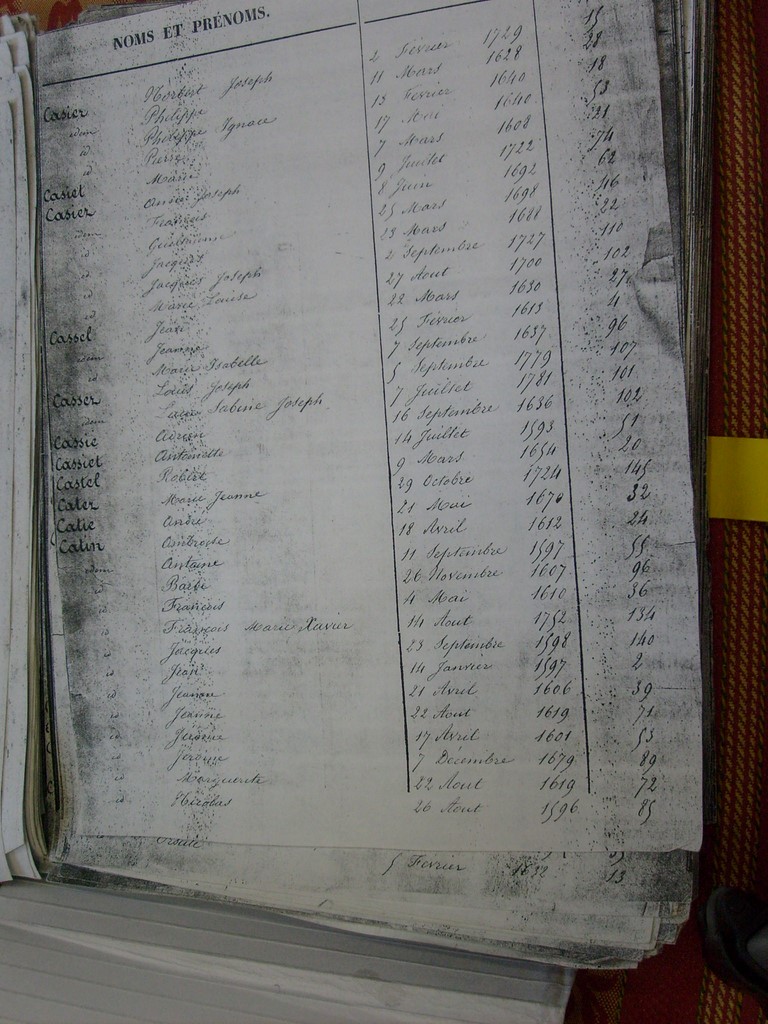 NOMS ET PRÉNOMS.
Casier Norbert Joseph 2 Février 1729 15
idem Philippe 11 Mars 1628 28
id Philippe Ignace 13 Fevrier 1640 18
id Pierre 17 Mai 1640 53
Casiet Marie 7 Mars 1608 21
Casier Anne Joseph 9 Juillet 1722 74
idem François 8 Juin 1692 62
id Guillaume 25 Mars 1698 46
id Jacques 23 Mars 1688 22
id Jacques Joseph 2 Septembre 1727 110
id Marie Louise 27 Aout 1700 102
Cassel Jean 22 Mars 1630 27
idem Jeanne 25 Février 1613 4
id Marie Isabelle 7 Septembre 1637 96
Casser Louis Joseph 5 Septembre 1779 107
idem Lucie Sabine Joseph 7 Juillet 1781 101
Cassie Adrien 16 Septembre 1636 102
Cassiet Antoinette 14 Juillet 1593 51
Castel Robert 9 Mars 1654 20
Cater Marie Jeanne 29 Octobre 1724 145
Catie André 21 Mai 1670 32
Catin Ambroise 18 Avril 1612 24
idem Antoine 11 Septembre 1597 55
id Barbe 26 Novembre 1607 96
id François 4 Mai 1610 36
id François Marie Xavier 14 Aout 1752 134
id Jacques 23 Septembre 1598 140
id Jean 14 Janvier 1597 2
id Jeanne 21 Avril 1606 39
id Jeanne 22 Aout 1619 71
id Jérôme 17 Avril 1601 53
id Jérôme 7 Décembre 1679 89
id Marguerite 22 Aout 1619 72
id Nicolas 26 Aout 1596 85
5 Fevrier 1632 13